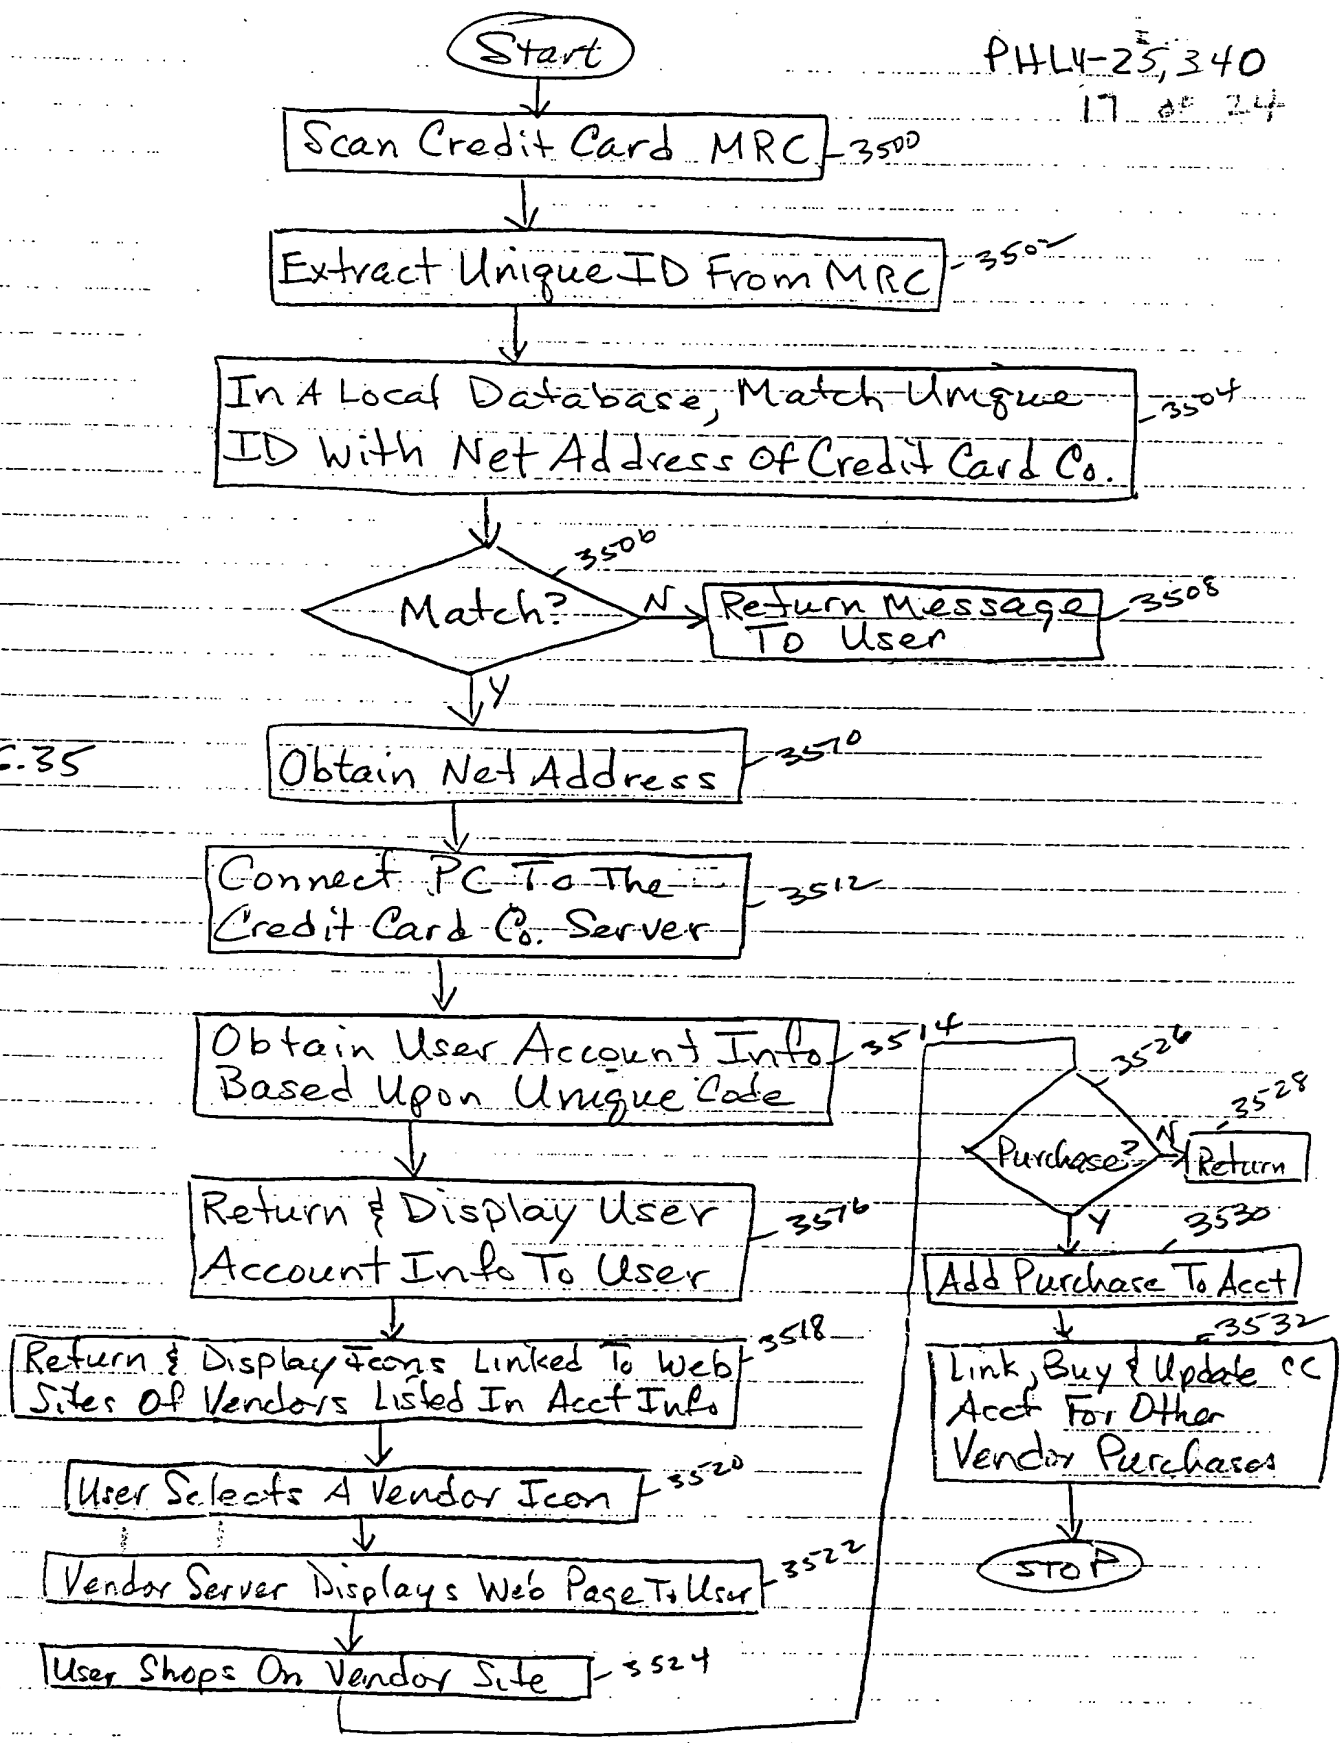 Start
PHLY-25,340
17 of 24
Scan Credit Card MRC
3500
Extract Unique ID From MRC
3502
In A Local Database, Match Unique
ID With Net Address Of Credit Card Co.
3504
3506
Match?
N
Return Message
To User
3508
Y
.35
Obtain Net Address
3510
Connect PC To The
Credit Card Co. Server
3512
Obtain User Account Info
Based Upon Unique Code
3514
Return & Display User
Account Info To User
3516
Return & Display Icons Linked To Web
Sites Of Vendors Listed In Acct Info
3518
User Selects A Vendor Icon
3520
Vendor Server Displays Web Page To User
3522
User Shops On Vendor Site
3524
3526
Purchase?
N
3528
Return
Y
3530
Add Purchase To Acct
3532
Link, Buy & Update CC
Acct For Other
Vendor Purchases
STOP